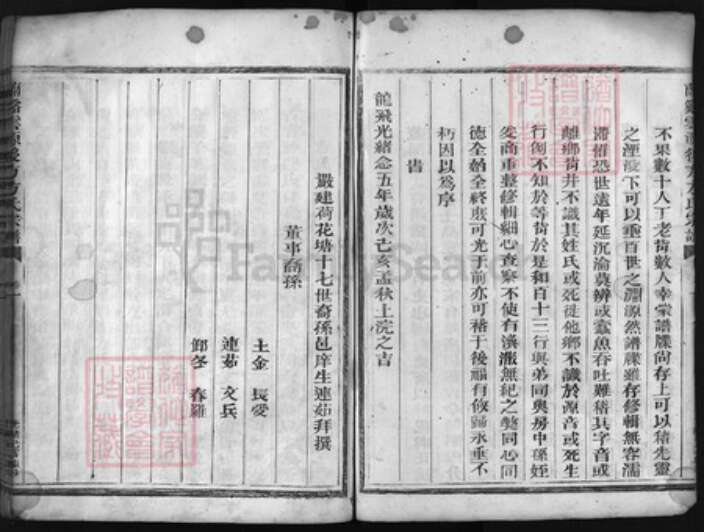 不果數十人丁老尚數人幸蒙譜牒尚存上可以稽先靈
之湮沒下可以垂百世之淵源然譜牒雖存修輯無容濡
滯惟恐世遠年延沉淪莫辨或蠹魚吞吐難稽其字音或
離鄉背井不識其姓氏或死徙他鄉不識於源音或死生
行衡不知於等背於是和百十三行與弟同與房中孫姪
爰商重整修輯細心查察不使有滲漏無紀之獘同心同
德全始全終庶可光于前亦可裕于後福有攸歸永垂不
朽因以為序
旹
龍飛光緒念五年歲次己亥孟秋上浣之吉
嚴建荷花塘十七世裔孫邑庠生連茹拜撰
董事裔孫
土金 長愛
連茹 文兵
卸冬 春雞
FamilySearch